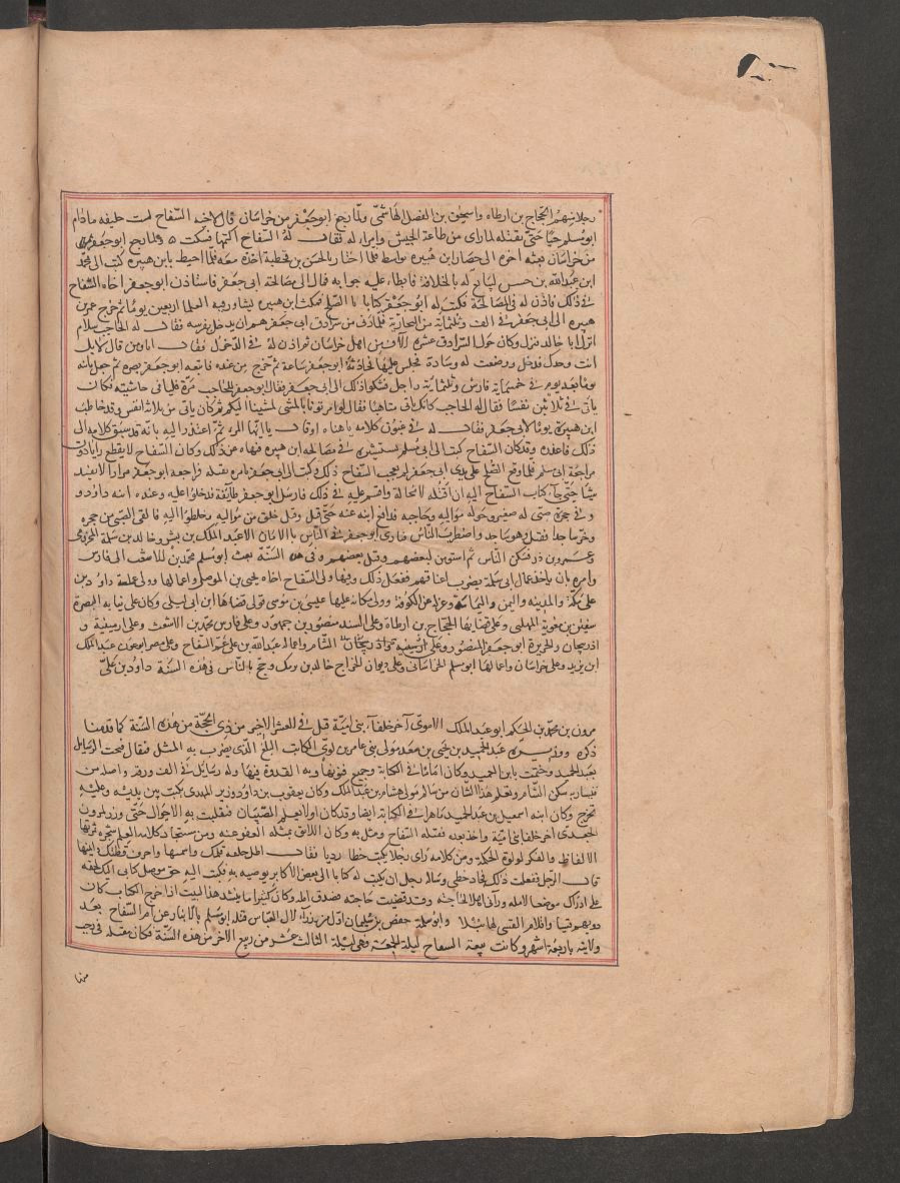 رجلا منهم الحجاج بن ارطاه واسحق بن الفضل الهاشمى ولما رجع ابو جعفر من خراسان قال لاخيه السفاح لست خليفه مادام
ابو مسلم حيا حتى تقتله لما راى من طاعة الجيش وامراء له فقال له السفاح اكتمها فسكت ولما رجع ابو جعفر
من خراسان بعثه اخوه الى حصار ابن هبيره بواسط فلما اجتاز بالحسن بن قحطبة اخذه معه فلما احيط بابن هبيره كتب الى محمد
ابن عبدالله بن حسن ليبايع له بالخلافة فابطاء عليه جوابه فمال الى مصالحة ابى جعفر فاستاذن ابو جعفر اخاه السفاح
فى ذلك فاذن له فى المصالحة فكتب له ابو جعفر كتابا بالصلح فمكث ابن هبيره يشاور فيه العلما اربعين يوما ثم خرج
هبيره الى ابى جعفر فى الف وثلثمائة من البخارية فلما دنى من سرادق ابى جعفر هم ان يدخل بفرسه فقال له الحاجب سلام
انزل ابا خالد فنزل وكان حول السرادق عشرة الاف من اهل خراسان ثم اذن له فى الدخول فقال انا ومن معى قال لا بل
انت وحدك فدخل ووضعت له وسادة فجلس عليها فحادثه ابو جعفر ساعة ثم خرج من عنده فاتبعه ابو جعفر بصره ثم جعل ياتيه
يوما بعد يوم فى خمسماية فارس وثلثماية راجل فشكوا ذلك الى ابى جعفر فقال ابو جعفر للحاجب مره فلياتى فى حاشيته فكان
ياتى فى ثلاثين نفسا فقال له الحاجب كانك تاتى متاهبا فقال لو امرتونا بالمشى لمشينا اليكم ثم كان ياتى فى ثلاثة انفس وقد خاطب
ابن هبيرة يوما لابى جعفر فقال له فى غبون كلامه ياهناه او قال يا ايها المرء ثم اعتذر اليه بانه قد سبق كلامه الى
ذلك فاعذره وقد كان السفاح كتب الى ابى مسلم يستشيره فى مصالحه ابن هبيره فنهاه عن ذلك وكان السفاح لا يقطع رايا دون
مراجعة ابى مسلم فلما وقع الصلح على يدى ابى جعفر لم يعجب السفاح ذلك وكتب الى ابى جعفر يامره بقتله فراجعه ابو جعفر مرارا لا يفيد
شيا حتى جاء كتاب السفاح اليه ان اقتله لا محالة واقسم عليه فى ذلك فارسل ابو جعفر طايفة فدخلوا عليه وعنده ابنه داود
وفى حجره صبى له صغير وحوله مواليه وحاجبه فدافع ابنه عنه حتى قتل وقتل خلق من مواليه وخلصوا اليه فالقى الصبى من حجره
وخر ساجدا فقتل وهو ساجد واضطرب الناس فنادى ابو جعفر فى الناس بالامان الا عبد الملك بن بشر وخالد بن سلمة المخزومى
وعمر بن ذر فسكن الناس ثم استومن لبعضهم وقتل بعضهم وفى هذه السنة بعث ابو مسلم محمد بن الاشعث الى فارس
وامره بان ياخذ عمال ابى سلمة يضرب اعناقهم ففعل ذلك وفيها ولى السفاح اخاه يحيى بن الموصل واعمالها وولى عمه داود بن
على مكة والمدينه واليمن واليمامة وعزله عن الكوفة وولى مكانه عليها عيسى بن موسى فولى قضاها ابن ابى ليلى وكان على نيابه البصرة
سفين بن معوية المهلبى وعلى قضايها الحجاج بن ارطاه وعلى السند منصور بن جمهور وعلى فارس محمد بن الاشعث وعلى ارمينية و
اذربيجان والجزيرة ابو جعفر المنصور وعلى الشام واعمالها عبدالله بن على عم السفاح وعلى مصر ابو عون عبد الملك
ابن يزيد وعلى خراسان واعمالها ابو مسلم الخراسانى وعلى ديوان الخراج خالد بن برمك وحج بالناس فى هذه السنة داود بن على
مرون بن محمد بن الحكم ابو عبد الملك الاموى آخر خلفآء بنى امية قتل فى العشر الاخير من ذى الحجة من هذه السنة كما قدمنا
ذكره ووزيره عبد الحميد بن يحيى بن سعد مولى بنى عامر بن لوى الكاتب البليغ الذى يضرب به المثل فقال فتحت الرسايل
بعبد الحميد وختمت بابن العميد وكان اماما فى الكتابة وجميع فنونها وبه القدوة فيها وله رسايل فى الف ورقة واصله من
قيساريه سكن الشام وتعلم هذا الشان من سالم مولى هشام بن عبد الملك وكان يعقوب بن داود وزير المهدى يكتب بين يديه وعليه
تخرج وكان ابنه اسمعيل بن عبد الحميد ماهرا فى الكتابة ايضا وقد كان اولا يعلم الصبيان فتقلبت به الاحوال حتى وزر لمرون
الجعدى آخر خلفاء بنى امية واخذ بعده فقتله السفاح ومثل به وكان اللائق بمثله العفو عنه ومن مستجاد كلامه العلم شجرة ثمرتها
الالفاظ والفكر لولوة الحكمة ومن كلامه وراى رجلا يكتب خطا رديا فقال اطل جلفة قلمك واسمنها وحرف قطتك وايمنها
قال الرجل ففعلت ذلك فجاد خطى وساله رجل ان يكتب له كتابا الى بعض الاكابر يوصيه به فكتب اليه حق موصل كتابى اليك كحقه
على اذراك موضعا لامله ورآنى اهلا لحاجته وقد قضيت حاجته فصدق امله وكان كثيرا ما ينشد هذا البيت اذا خرج الكتاب كان
دويهم قسيا واقلام القسى لها نبلا وابو سلمة حفص بن سليمان اول من وزر لآل العباس قتله ابو مسلم بالانبار عن امر السفاح بعد
ولايته باربعة اشهر وكانت بيعة السفاح ليلة الجمعة فى ليلة الثالث عشر من ربيع الاخر من هذه السنة فكان مقتله فى رجب